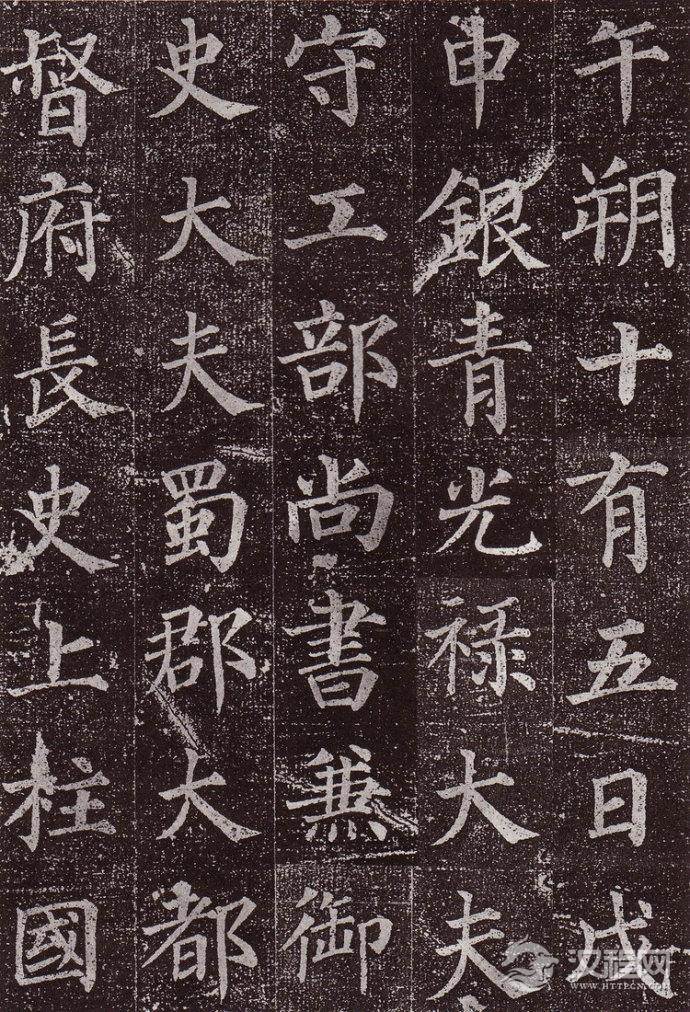 午朔十有五日戊
申銀青光禄大夫
守工部尚書兼御
史大夫蜀郡大都
督府長史上柱國
汉程网
WWW.HTTPCN.COM